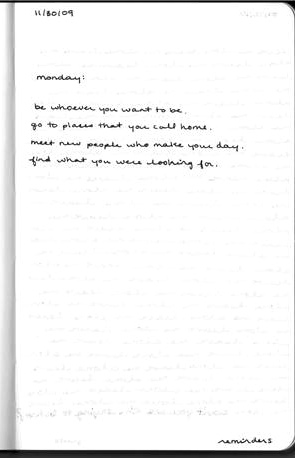 11/30/09
monday:
be whoever you want to be.
go to places that you call home.
meet new people who make your day.
find what you were looking for.
reminders